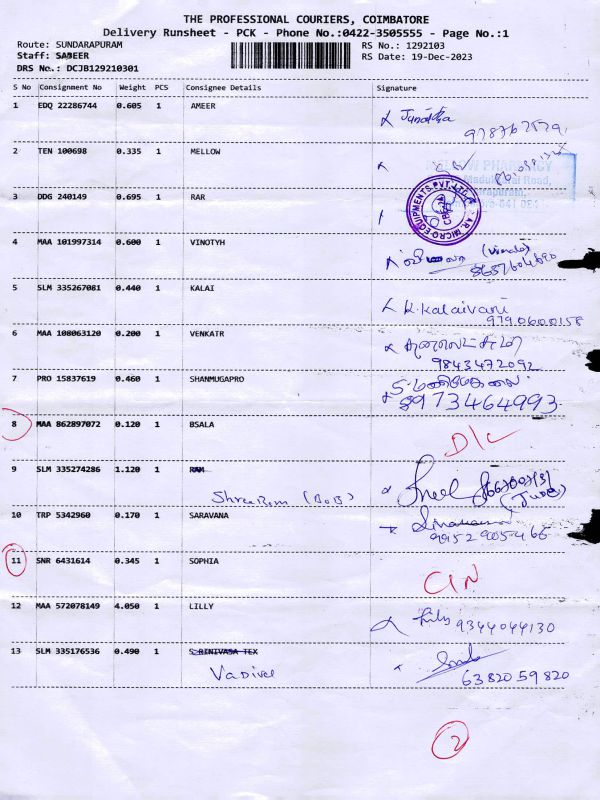 THE PROFESSIONAL COURIERS, COIMBATORE
Delivery Runsheet - PCK - Phone No.:0422-3505555 - Page No.:1
Route: SUNDARAPURAM RS No.: 1292103
Staff: SAJEER RS Date: 19-Dec-2023
DRS No.: DCJB129210301
S No Consignment No Weight PCS Consignee Details Signature
1 EDQ 22286744 0.605 1 AMEER
2 TEN 100698 0.335 1 MELLOW
PHARMACY
Road,
3 DDG 240149 0.695 1 RAR
MICRO EQUIPMENTS PVT. LTD
4 MAA 101997314 0.600 1 VINOTYH
8637604690
5 SLM 335267081 0.440 1 KALAI K. Kalaivani
9790600158
6 MAA 108063120 0.200 1 VENKATR
9843472092
7 PRO 15837619 0.460 1 SHANMUGAPRO
8973464993
8 MAA 862897072 0.120 1 BSALA D/L
9 SLM 335274286 1.120 1 RAM
ShreeRam (BOB)
10 TRP 5342960 0.170 1 SARAVANA
9952905466
11 SNR 6431614 0.345 1 SOPHIA
CIN
12 MAA 572078149 4.050 1 LILLY Lily 9344044130
13 SLM 335176536 0.490 1 S RINIVASA TEX
Vadivel 6382059820
2